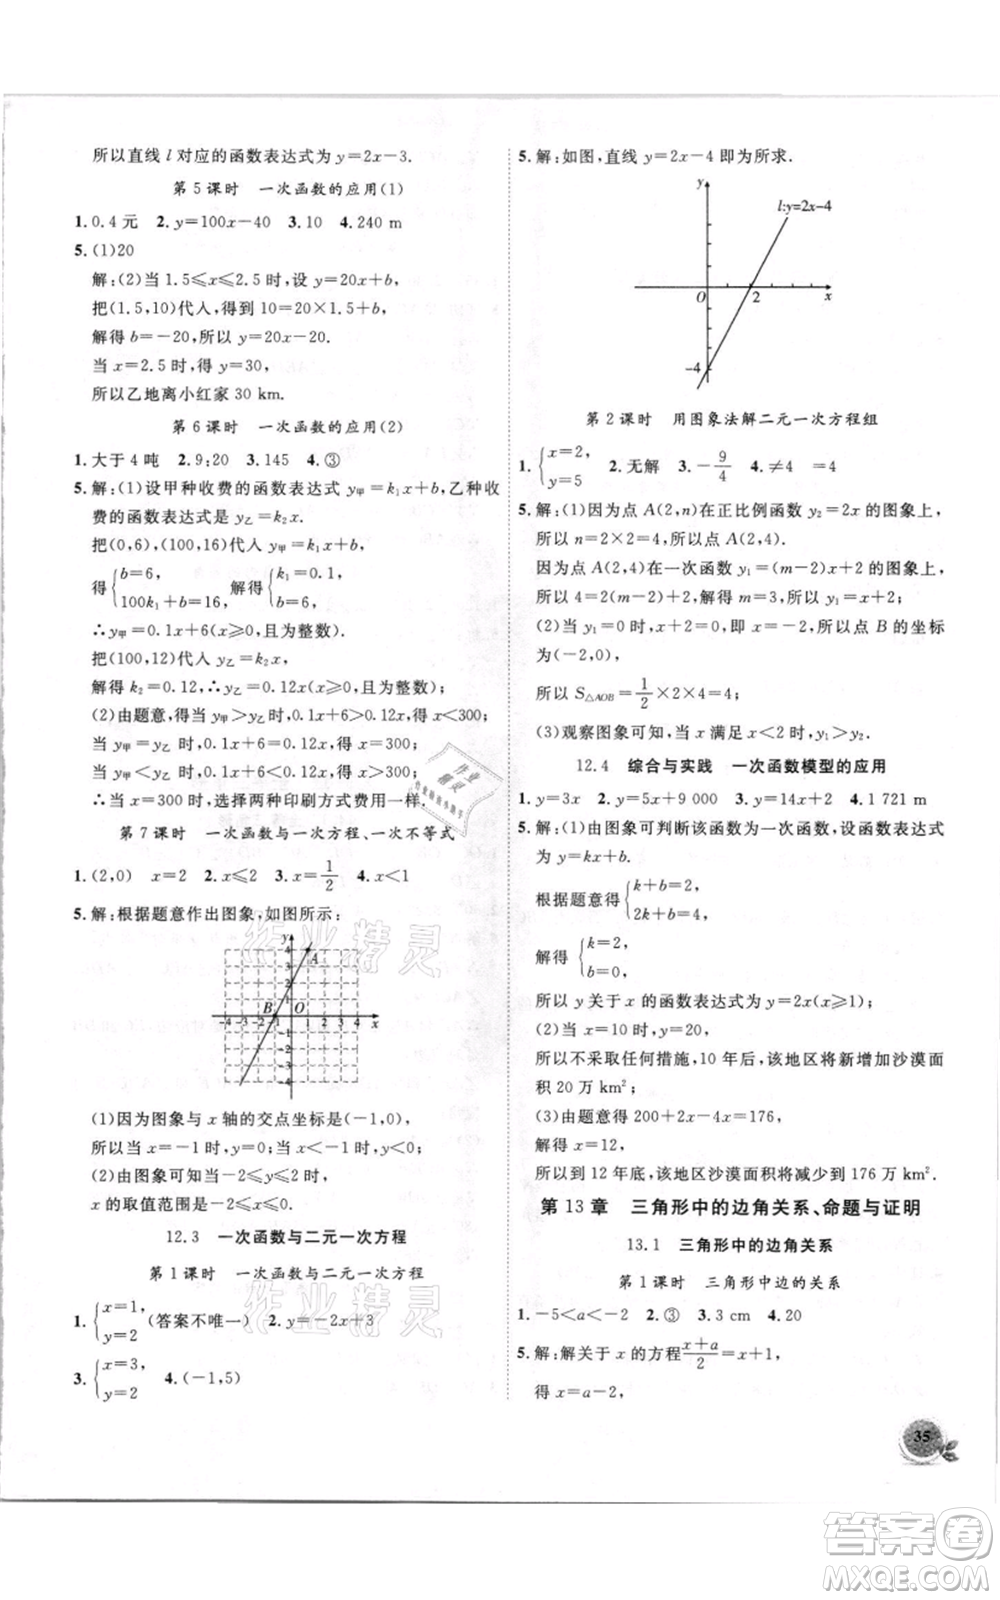 所以直线 l 对应的函数表达式为 y=2x-3.
第 5 课时 一次函数的应用(1)
1.0.4 元 2.y=100x-40 3.10 4.240 m
5.(1)20
解:(2)当 1.5≤x≤2.5 时,设 y=20x+b,
把(1.5,10)代人,得到 10=20×1.5+b,
解得 b=-20,所以 y=20x-20.
当 x=2.5 时,得 y=30,
所以乙地离小红家 30 km.
第 6 课时 一次函数的应用(2)
1.大于 4 吨 2.9:20 3.145 4.③
5.解:(1)设甲种收费的函数表达式 y甲=k₁x+b,乙种收
费的函数表达式是 y乙=k₂x.
把(0,6),(100,16)代人 y甲=k₁x+b,
得{b=6, 100k₁+b=16, 解得{k₁=0.1, b=6,
∴y甲=0.1x+6(x≥0,且为整数).
把(100,12)代人 y乙=k₂x,
解得 k₂=0.12,∴y乙=0.12x(x≥0,且为整数);
(2)由题意,得当 y甲>y乙时,0.1x+6>0.12x,得 x<300;
当 y甲=y乙时,0.1x+6=0.12x,得 x=300;
当 y甲<y乙时,0.1x+6<0.12x,得 x>300;
∴当 x=300 时,选择两种印刷方式费用一样.
第 7 课时 一次函数与一次方程、一次不等式
1.(2,0) x=2 2.x≤2 3.x=1/2 4.x<1
5.解:根据题意作出图象,如图所示:
y
A
B O
x
(1)因为图象与 x 轴的交点坐标是(-1,0),
所以当 x=-1 时,y=0;当 x<-1 时,y<0;
(2)由图象可知当-2≤y≤2 时,
x 的取值范围是-2≤x≤0.
12.3 一次函数与二元一次方程
第 1 课时 一次函数与二元一次方程
1.{x=1, y=2 (答案不唯一) 2.y=-2x+3
3.{x=3, y=2 4.(-1,5)
5.解:如图,直线 y=2x-4 即为所求.
y
l:y=2x-4
O 2 x
-4
第 2 课时 用图象法解二元一次方程组
1.{x=2, y=5 2.无解 3.-9/4 4.≠4 =4
5.解:(1)因为点 A(2,n)在正比例函数 y₂=2x 的图象上,
所以 n=2×2=4,所以点 A(2,4).
因为点 A(2,4)在一次函数 y₁=(m-2)x+2 的图象上,
所以 4=2(m-2)+2,解得 m=3,所以 y₁=x+2;
(2)当 y₁=0 时,x+2=0,即 x=-2,所以点 B 的坐标
为(-2,0),
所以 S△AOB=1/2×2×4=4;
(3)观察图象可知,当 x 满足 x<2 时,y₁>y₂.
12.4 综合与实践 一次函数模型的应用
1.y=3x 2.y=5x+9 000 3.y=14x+2 4.1 721 m
5.解:(1)由图象可判断该函数为一次函数,设函数表达式
为 y=kx+b.
根据题意,得{k+b=2, 2k+b=4,
解得{k=2, b=0,
所以 y 关于 x 的函数表达式为 y=2x(x≥1);
(2)当 x=10 时,y=20,
所以不采取任何措施,10 年后,该地区将新增加沙漠面
积 20 万 km²;
(3)由题意得 200+2x-4x=176,
解得 x=12,
所以到 12 年底,该地区沙漠面积将减少到 176 万 km².
第 13 章 三角形中的边角关系、命题与证明
13.1 三角形中的边角关系
第 1 课时 三角形中边的关系
1.-5<a<-2 2.③ 3.3 cm 4.20
5.解:解关于 x 的方程(x+a)/2=x+1,
得 x=a-2,
35
作业精灵
作业精灵
作业精灵
答案卷
MXQE.COM